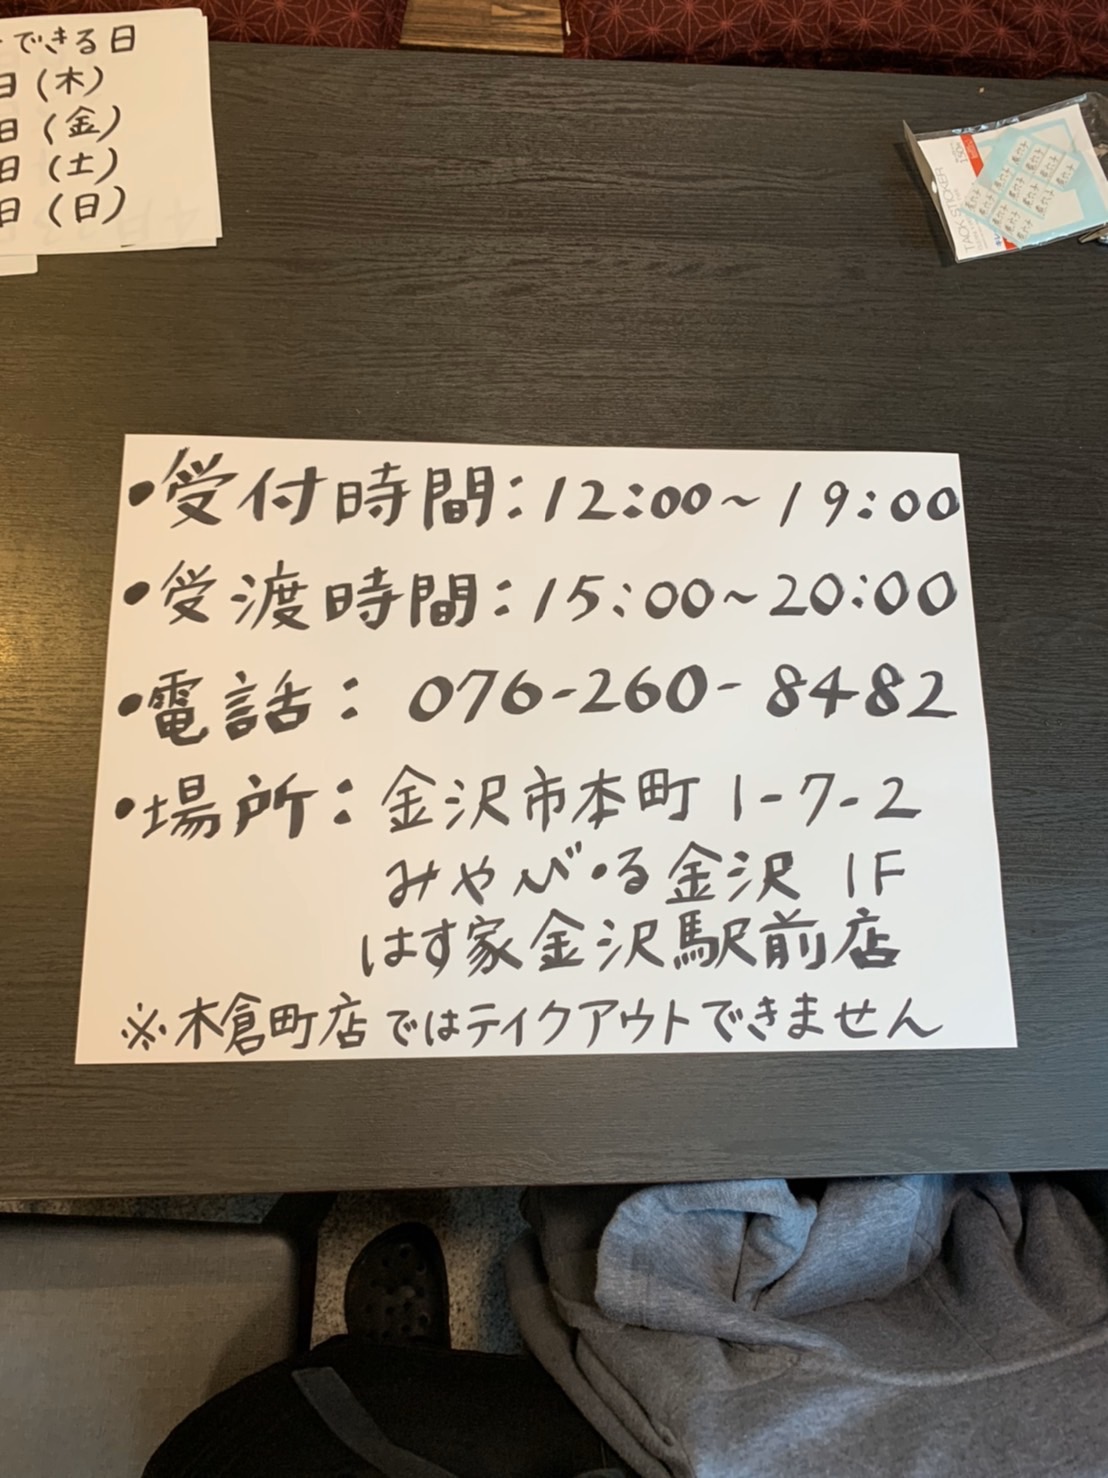 できる日
日(木)
日(金)
日(土)
日(日)
TACK STICKER
・受付時間:12:00~19:00
・受渡時間:15:00~20:00
・電話:076-260-8482
・場所:金沢市本町1-7-2
みやび・る金沢 1F
はす家金沢駅前店
※木倉町店ではテイクアウトできません